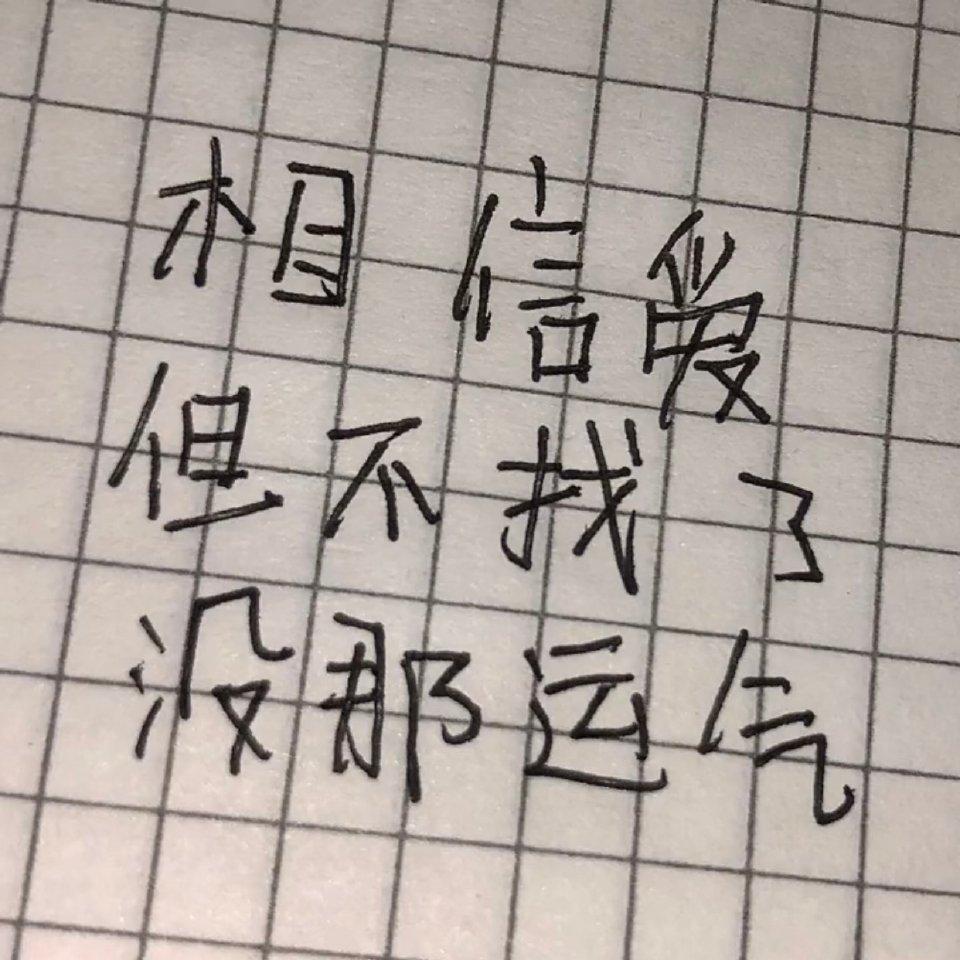 相信爱
但不找了
没那运气